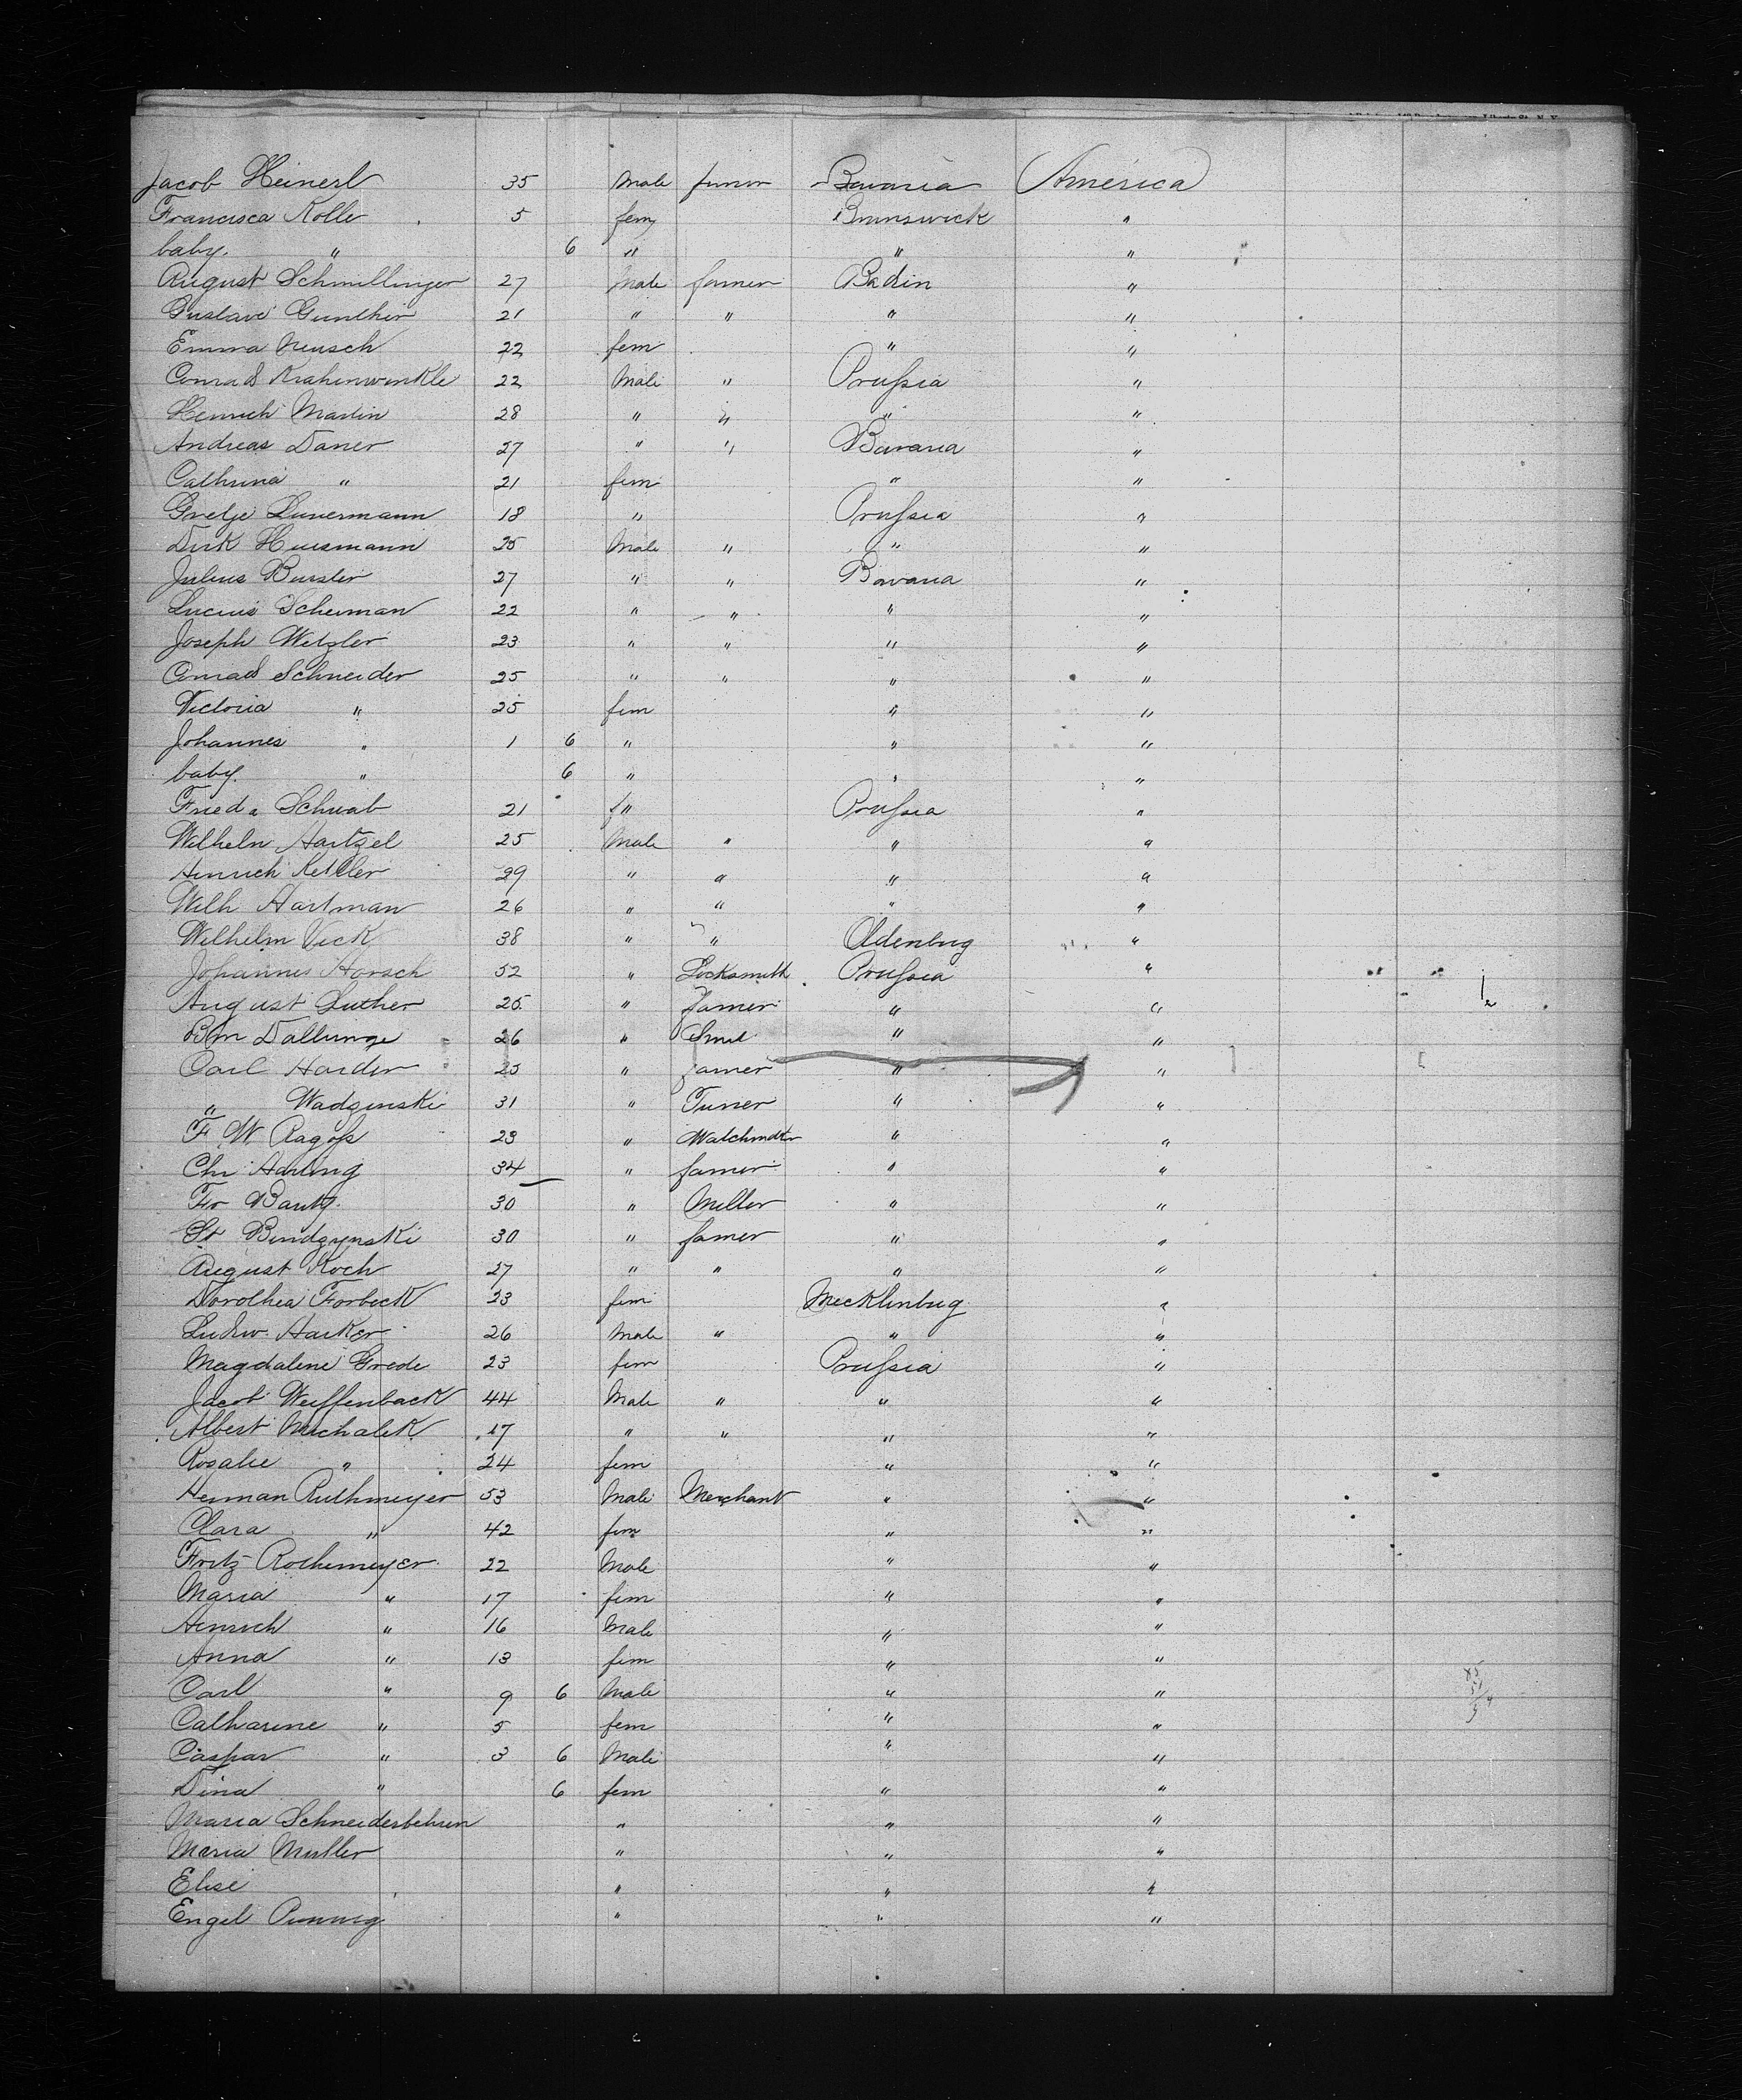 Jacob Heinerl 35 Male farmer Bavaria America
Francisca Koller 5 fem Brunswick "
baby. " 6 " " "
August Schmillinger 27 Male farmer Badin "
Gustave Gunther 21 " " " "
Emma Neusch 22 fem " "
Conrad Krahenwinkle 22 Male " Prussia "
Heinrich Martin 28 " " " "
Andreas Daner 27 " " Bavaria "
Cathrina " 21 fem " "
Gretje Lunermann 18 " Prussia "
Dirk Huismann 25 Male " " "
Julius Bursler 27 " " Bavaria "
Lucius Scheiman 22 " " " "
Joseph Wetzler 23 " " " "
Conrad Schneider 25 " " " "
Victoria " 25 fem " "
Johannes " 1 6 " " "
baby. " 6 " " "
Frieda Schwab 21 f " Prussia "
Wilhelm Hartzel 25 Male " " "
Heinrich Kettler 29 " " " "
Wilh Hartman 26 " " " "
Wilhelm Vick 38 " " Oldenbug "
Johannes Horsch 52 " Locksmith Prussia "
August Luther 25 " famer " "
Dallunge 26 " " "
Carl Harder 25 " famer " "
" Wadzinski 31 " Turner " "
F W Ragoss 23 " " "
Chr Harling 34 " famer " "
Fr Bantz. 30 " Miller " "
St Bindzynski 30 " famer " "
August Koch 27 " " " "
Dorothea Forbeck 23 fem Mecklinbug "
Ludw. Harker 26 Male " " "
Magdalene Grede 23 fem Prussia "
Jacob Weiffenback 44 Male " " "
Albert Michalek 27 " " " "
Rosalie " 24 fem " "
Herman Ruthmeyer 53 Male Merchant " "
Clara " 42 fem " "
Fritz Rothemeyer 22 Male " "
Maria " 17 fem " "
Heinrich " 16 Male " "
Anna " 13 fem " "
Carl " 9 6 Male " "
Catharine " 5 fem " "
Caspar " 3 6 Male " "
Dina " 6 fem " "
Maria Schneiderbehren " " "
Maria Muller " " "
Elise " " "
Engel " " "